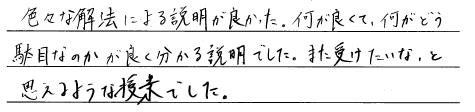 色々な解法による説明が良かった。何が良くて、何がどう
駄目なのかが良く分かる説明でした。また受けたいな、と
思えるような授業でした。